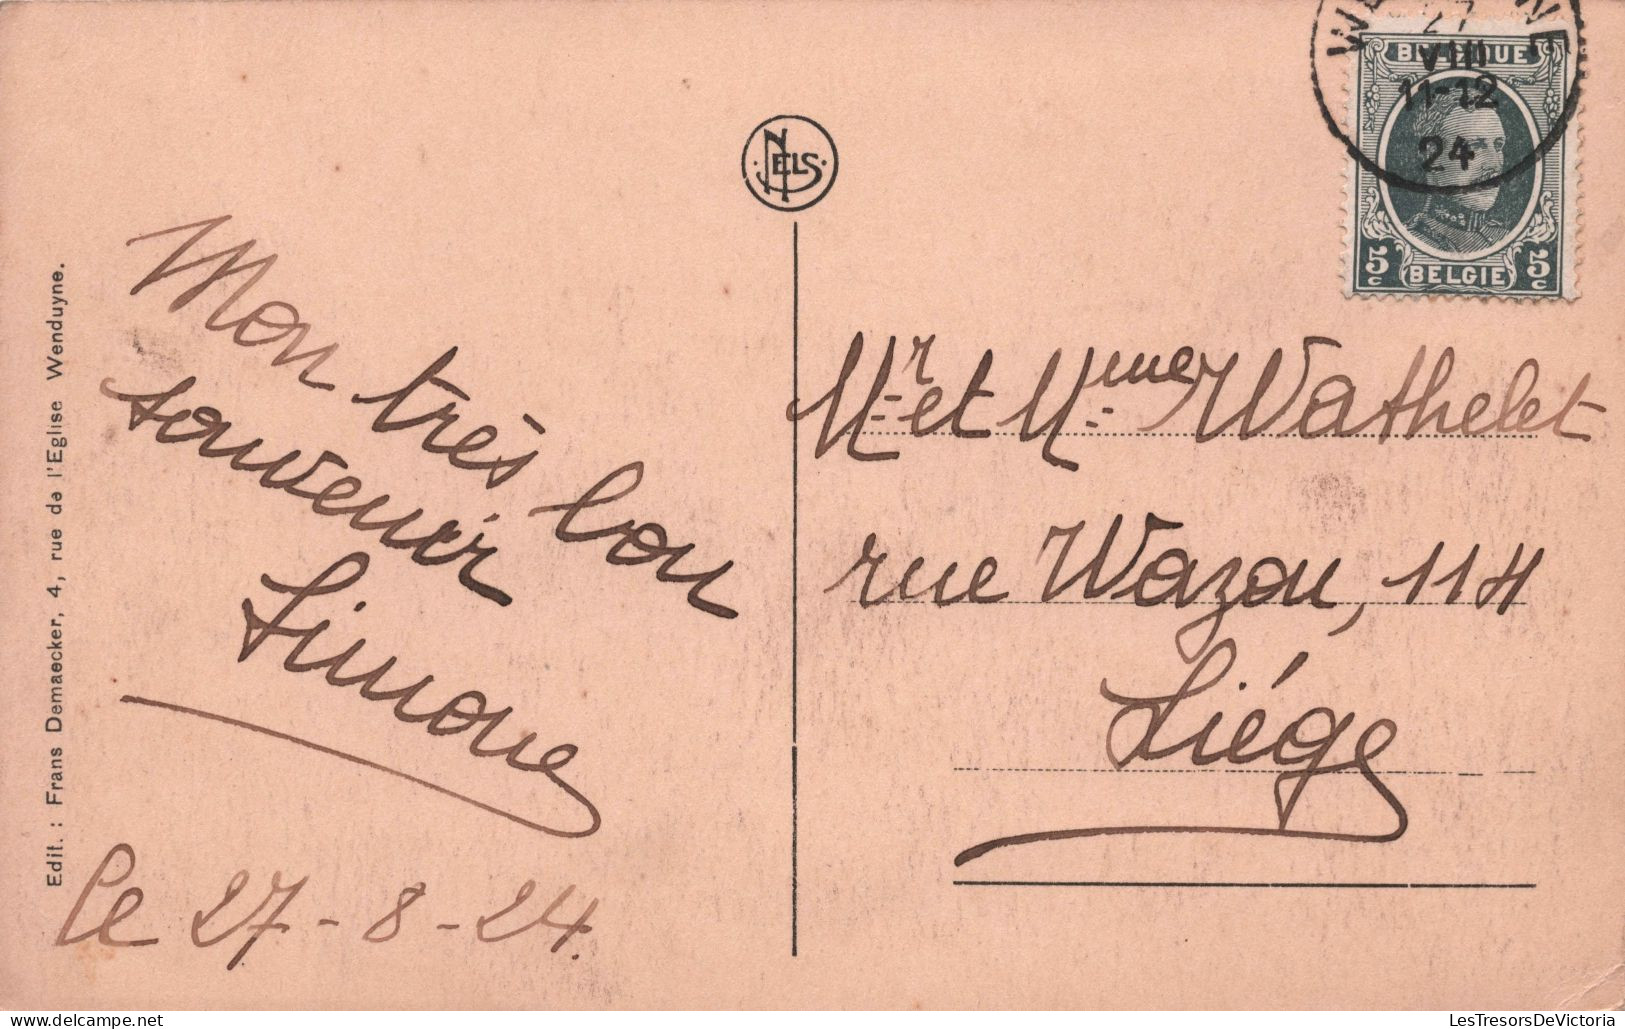 27
VIII
11-12
24
BELGIQUE
5c BELGIE 5c
NELS
Edit. : Frans Demaecker, 4, rue de l'Eglise Wenduyne.
Mon très bon
souvenir
Simone
le 27-8-24.
Mr et Mme Wathelet
rue Wazon, 114
Liége
LesTresorsDeVictoria